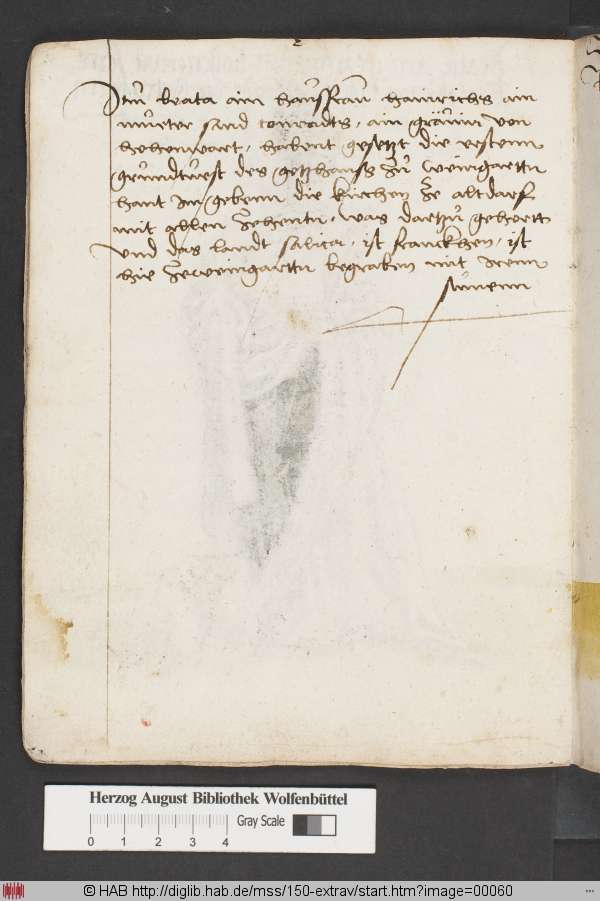 Item beata ain haüsfraw hainrichs ain
müeter sand conradts, ain gräuin von
hohenwart, habent gesetzt die ersstenn
gründtvest des gotzhauss zü Weingarttn
hant Im gebenn die kirchen ze altdarf
mit allen zehentn, was dartzü gehoertt
vnd das landt salica, ist franckhen, ist
hie zeweingarttn begraben mit Irenn
sünenn
Herzog August Bibliothek Wolfenbüttel
0 1 2 3 4 Gray Scale
© HAB http://diglib.hab.de/mss/150-extrav/start.htm?image=00060